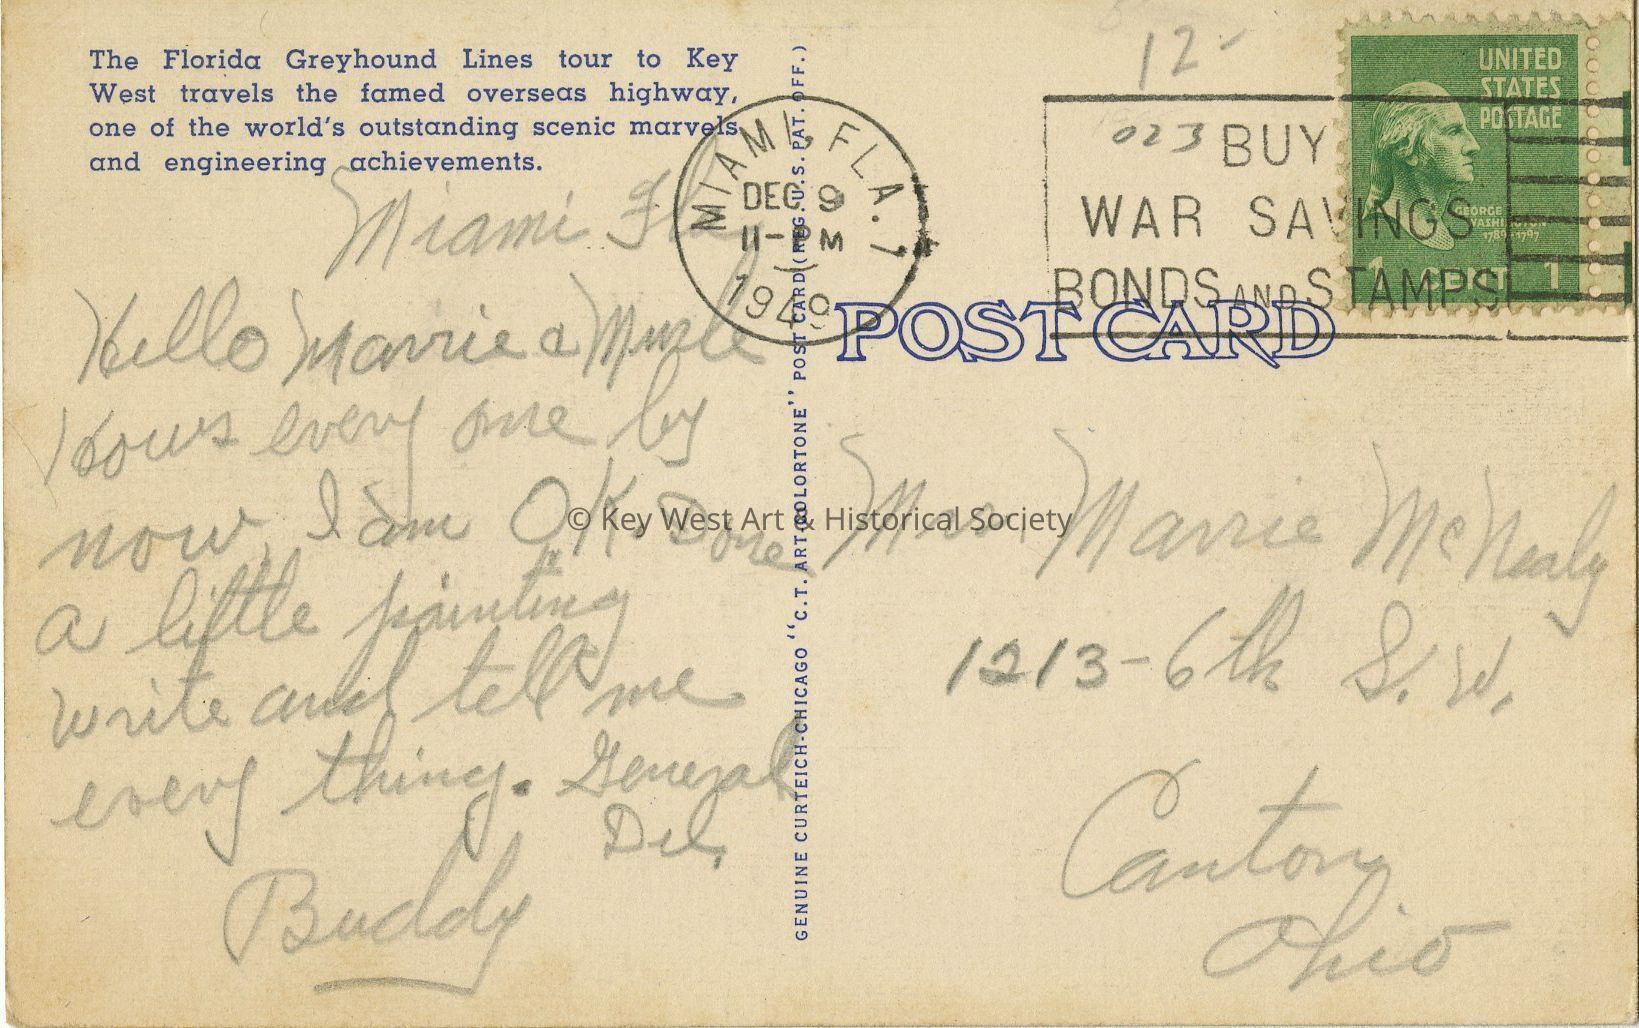 The Florida Greyhound Lines tour to Key
West travels the famed overseas highway,
one of the world's outstanding scenic marvels
and engineering achievements.
Miami Fla
Hello Marrie & Murle
Hows every one by
now, I am OK. Done
a little painting
write and tell me
every thing. General
Del.
Buddy
GENUINE CURTEICH-CHICAGO "C.T. ART-COLORTONE" POST CARD (REG. U.S. PAT. OFF.)
MIAMI, FLA. 1
DEC 9
11- PM
1949
12-
023
BUY
WAR SAVINGS
BONDS AND STAMPS
UNITED
STATES
POSTAGE
GEORGE
WASHINGTON
1789-1797
1 CENT 1
POST CARD
© Key West Art & Historical Society
Mrs Marrie McNealy
1213-6th S.W.
Canton
Ohio